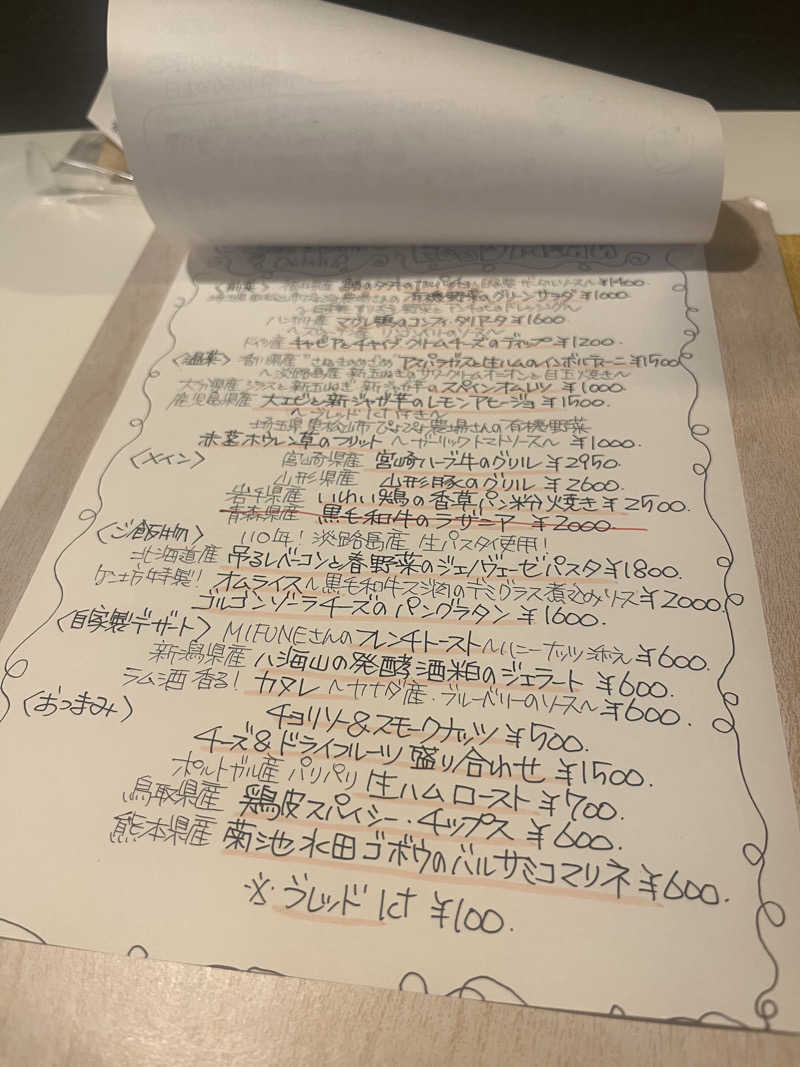 〈前菜〉 鯛のタタキのカルパッチョ ¥1400
有機野菜のグリーンサラダ ¥1000.
ハンガリー産 マグレ鴨のコンフィ タリアータ ¥1600
ドイツ産 キャビアとチャイブ クリームチーズのディップ ¥1200.
〈温菜〉 香川県産 "さぬきのめざめ" アスパラガスと生ハムのインボルティーニ ¥1500
〜淡路島産 新玉ねぎのサワークリームオニオンと目玉焼き〜
大分県産 シラスと新玉ねぎ 新ジャガ芋のスペインオムレツ ¥1000.
鹿児島県産 大エビと新ジャガ芋のレモンアヒージョ ¥1500.
〜ブレッド1ct付き〜
埼玉県 東松山市 ぴょぴょ農場さんの有機野菜
赤茎ホウレン草のフリット 〜ガーリックトマトソース〜 ¥1000.
〈メイン〉 宮崎県産 宮崎ハーブ牛のグリル ¥2950.
山形県産 山形豚のグリル ¥2600.
岩手県産 いわい鶏の香草パン粉焼き ¥2500.
青森県産 黒毛和牛のラザニア ¥2000.
〈ご飯物〉 110年! 淡路島産 生パスタ使用!
北海道産 吊るしベーコンと春野菜のジェノヴェーゼパスタ ¥1800.
特製! オムライス〜黒毛和牛スジ肉のデミグラス煮込みソース ¥2000.
ゴルゴンゾーラチーズのパングラタン ¥1600.
〈自家製デザート〉 MIFUNEさんのフレンチトースト〜ハニーナッツ添え ¥600.
新潟県産 八海山の発酵酒粕のジェラート ¥600.
ラム酒香る! カヌレ 〜カナダ産・ブルーベリーのソース〜 ¥600.
〈おつまみ〉
チョリソー&スモークナッツ ¥500.
チーズ&ドライフルーツ 盛り合わせ ¥1500.
ポルトガル産 パリパリ 生ハムロースト ¥700.
鳥取県産 鶏皮スパイシー・チップス ¥600.
熊本県産 菊池水田ゴボウのバルサミコマリネ ¥600.
※ブレッド 1ct ¥100.